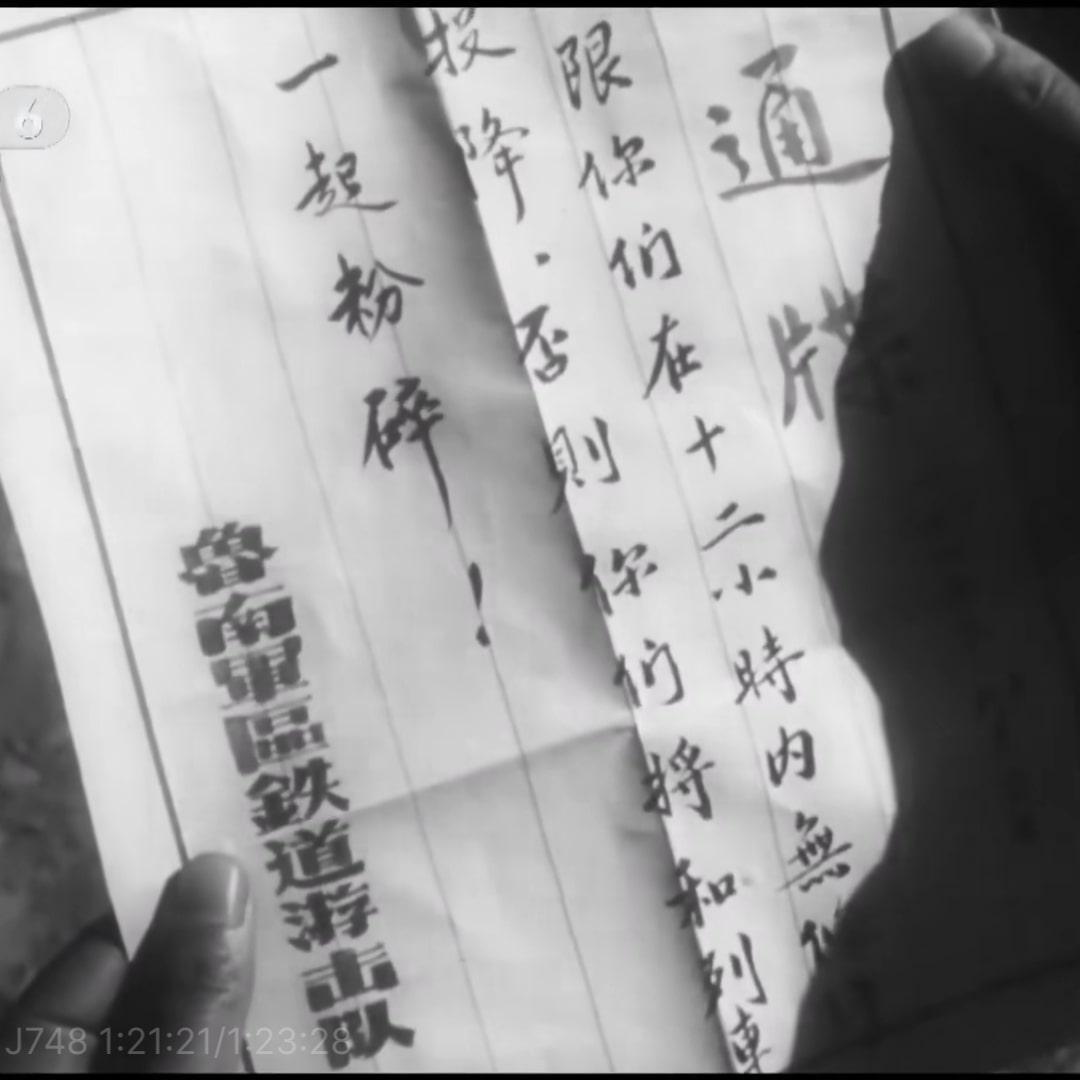 通牒
限你们在十二小時内無
投降．否則你们将和列車
一起粉碎！
魯南軍區鉄道游击队
6
J748 1:21:21/1:23:28